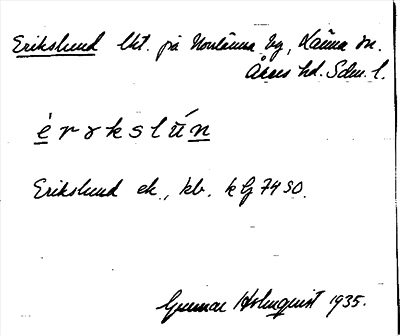 Erikslund lht. på Norrlänna by, Länna sn.
Åkers hd. Sdm. l.
èrәkslún
Erikslund ek., kb. k Gf 74 S0.
Gunnar Holmquist 1935.